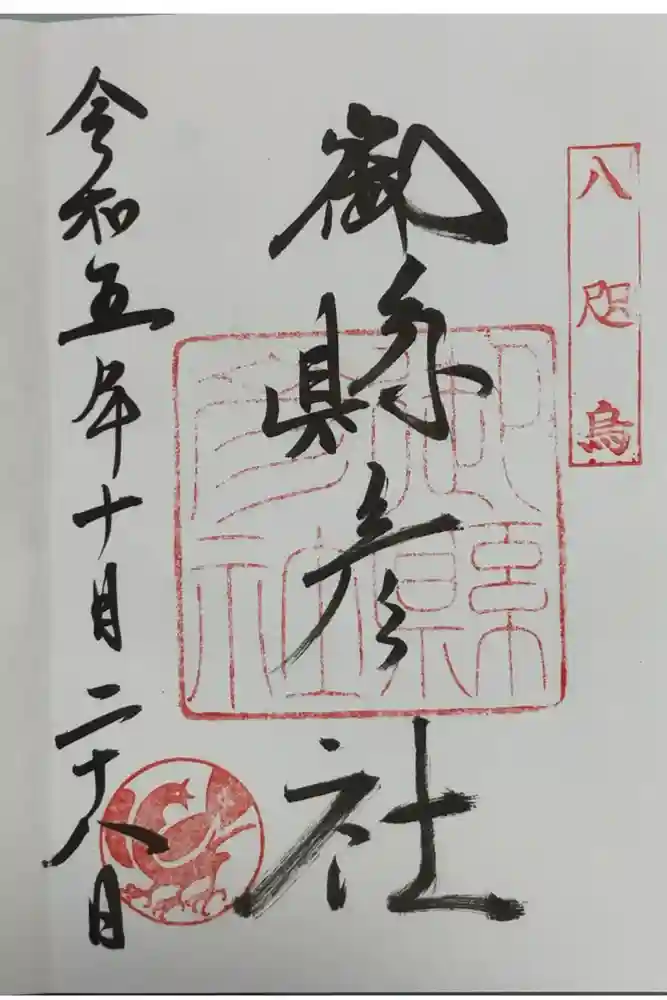 八咫烏
御縣彦社
御縣彦社
令和五年十月二十八日